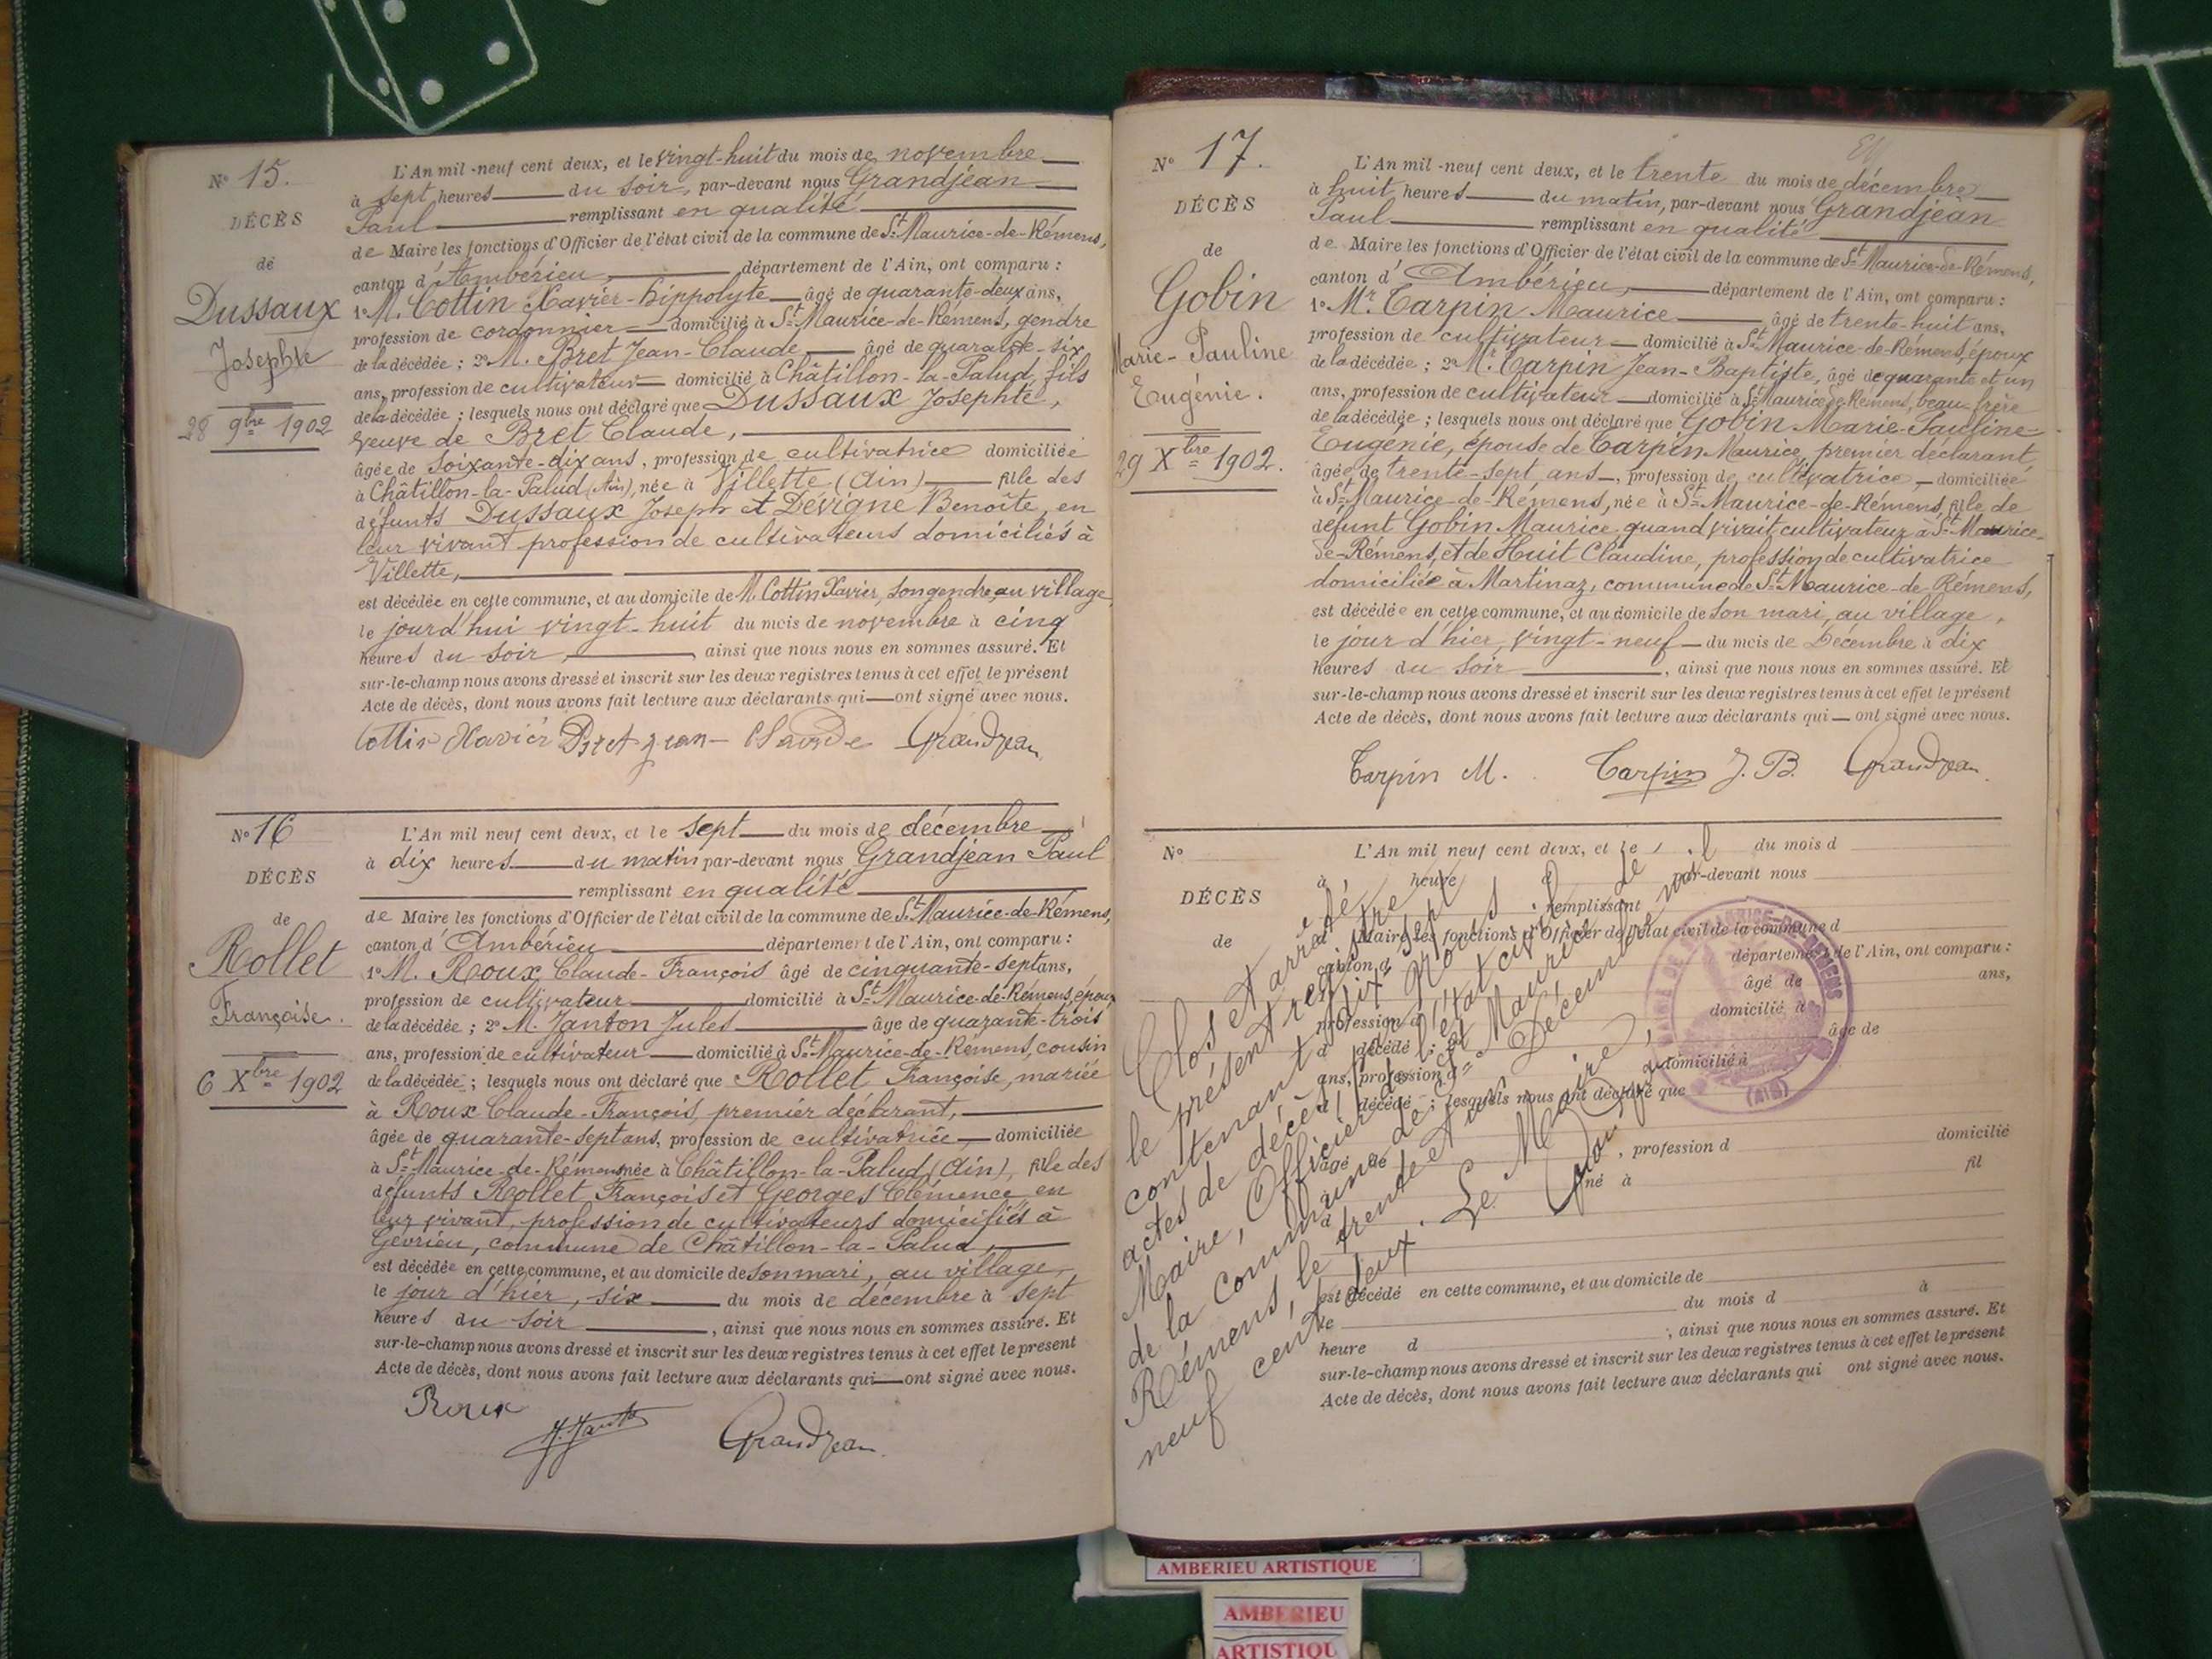 N° 15.
DÉCÈS
de
Dussaux
Josephte
28 9bre 1902
L'An mil-neuf cent deux, et le vingt-huit du mois de novembre
à sept heures du soir, par-devant nous Grandjean
Paul remplissant en qualité
de Maire les fonctions d'Officier de l'état civil de la commune de St Maurice-de-Rémens,
canton d'Ambérieu, département de l'Ain, ont comparu :
1° M. Cottin Xavier-hippolyte âgé de quarante-deux ans,
profession de cordonnier domicilié à St Maurice-de-Rémens, gendre
de la décédée ; 2° M. Bret Jean-Claude âgé de quarante-six
ans, profession de cultivateur domicilié à Châtillon-la-Palud, fils
de la décédée ; lesquels nous ont déclaré que Dussaux Josephte,
veuve de Bret Claude,
âgée de soixante-dix ans, profession de cultivatrice domiciliée
à Châtillon-la-Palud (Ain), née à Villette (Ain) fille des
défunts Dussaux Joseph et Dévigne Benoîte, en
leur vivant profession de cultivateurs domiciliés à
Villette,
est décédée en cette commune, et au domicile de M. Cottin Xavier, son gendre, au village,
le jourd'hui vingt-huit du mois de novembre à cinq
heures du soir, ainsi que nous nous en sommes assuré. Et
sur-le-champ nous avons dressé et inscrit sur les deux registres tenus à cet effet le présent
Acte de décès, dont nous avons fait lecture aux déclarants qui ont signé avec nous.
Cottin Xavier Bret Jean-Claude Grandjean
N° 16
DÉCÈS
de
Rollet
Françoise.
6 Xbre 1902
L'An mil neuf cent deux, et le sept du mois de décembre
à dix heures du matin par-devant nous Grandjean Paul
remplissant en qualité
de Maire les fonctions d'Officier de l'état civil de la commune de St Maurice-de-Rémens,
canton d'Ambérieu département de l'Ain, ont comparu :
1° M. Roux Claude-François âgé de cinquante-sept ans,
profession de cultivateur domicilié à St Maurice-de-Rémens, époux
de la décédée ; 2° M. Janton Jules âge de quarante-trois
ans, profession de cultivateur domicilié à St Maurice-de-Rémens, cousin
de la décédée ; lesquels nous ont déclaré que Rollet Françoise, mariée
à Roux Claude-François, premier déclarant,
âgée de quarante-sept ans, profession de cultivatrice domiciliée
à St Maurice-de-Rémens née à Châtillon-la-Palud (Ain), fille des
défunts Rollet François et Georges Clémence en
leur vivant, profession de cultivateurs domiciliés à
Gévrieu, commune de Châtillon-la-Palud,
est décédée en cette commune, et au domicile de son mari, au village,
le jour d'hier, six du mois de décembre à sept
heures du soir, ainsi que nous nous en sommes assuré. Et
sur-le-champ nous avons dressé et inscrit sur les deux registres tenus à cet effet le présent
Acte de décès, dont nous avons fait lecture aux déclarants qui ont signé avec nous.
Roux J. Janton Grandjean
N° 17.
DÉCÈS
de
Gobin
Marie-Pauline
Eugénie.
29 Xbre 1902.
L'An mil-neuf cent deux, et le trente du mois de décembre
à huit heures du matin, par-devant nous Grandjean
Paul remplissant en qualité
de Maire les fonctions d'Officier de l'état civil de la commune de St Maurice-de-Rémens,
canton d'Ambérieu, département de l'Ain, ont comparu :
1° Mr. Carpin Maurice âgé de trente-huit ans,
profession de cultivateur domicilié à St Maurice-de-Rémens, époux
de la décédée ; 2° Mr. Carpin Jean-Baptiste, âgé de quarante et un
ans, profession de cultivateur domicilié à St Maurice de Rémens, beau-frère
de la décédée ; lesquels nous ont déclaré que Gobin Marie-Pauline-
Eugénie, épouse de Carpin Maurice, premier déclarant,
âgée de trente-sept ans, profession de cultivatrice, domiciliée
à St Maurice-de-Rémens, née à St Maurice-de-Rémens, fille de
défunt Gobin Maurice, quand vivait cultivateur à St Maurice-
de-Rémens, et de Huit Claudine, profession de cultivatrice
domiciliée à Martinaz, commune de St Maurice-de-Rémens,
est décédée en cette commune, et au domicile de son mari, au village,
le jour d'hier, vingt-neuf du mois de Décembre à dix
heures du soir, ainsi que nous nous en sommes assuré. Et
sur-le-champ nous avons dressé et inscrit sur les deux registres tenus à cet effet le présent
Acte de décès, dont nous avons fait lecture aux déclarants qui ont signé avec nous.
Carpin M. Carpin J. B. Grandjean
N°
DÉCÈS
de
L'An mil neuf cent deux, et le du mois d
à heure d par-devant nous
remplissant
d Maire les fonctions d'Officier de l'état civil de la commune d
canton d département de l'Ain, ont comparu :
âgé de ans,
profession d domicilié à
d décédé ; 2° âge de
ans, profession d domicilié à
d décédé ; lesquels nous ont déclaré que
âgé de , profession d domicilié
à né à fil
est décédé en cette commune, et au domicile de
le du mois d à
heure d , ainsi que nous nous en sommes assuré. Et
sur-le-champ nous avons dressé et inscrit sur les deux registres tenus à cet effet le présent
Acte de décès, dont nous avons fait lecture aux déclarants qui ont signé avec nous.
Clos et arrêté,
le présent registre
contenant dix-sept
actes de décès, par Nous
Maire, Officier de l'état civil
de la commune de St Maurice de
Rémens, le trente et un Décembre mil
neuf cent deux. Le Maire,
(AIN)
AMBERIEU ARTISTIQUE
AMBERIEU
ARTISTIQU